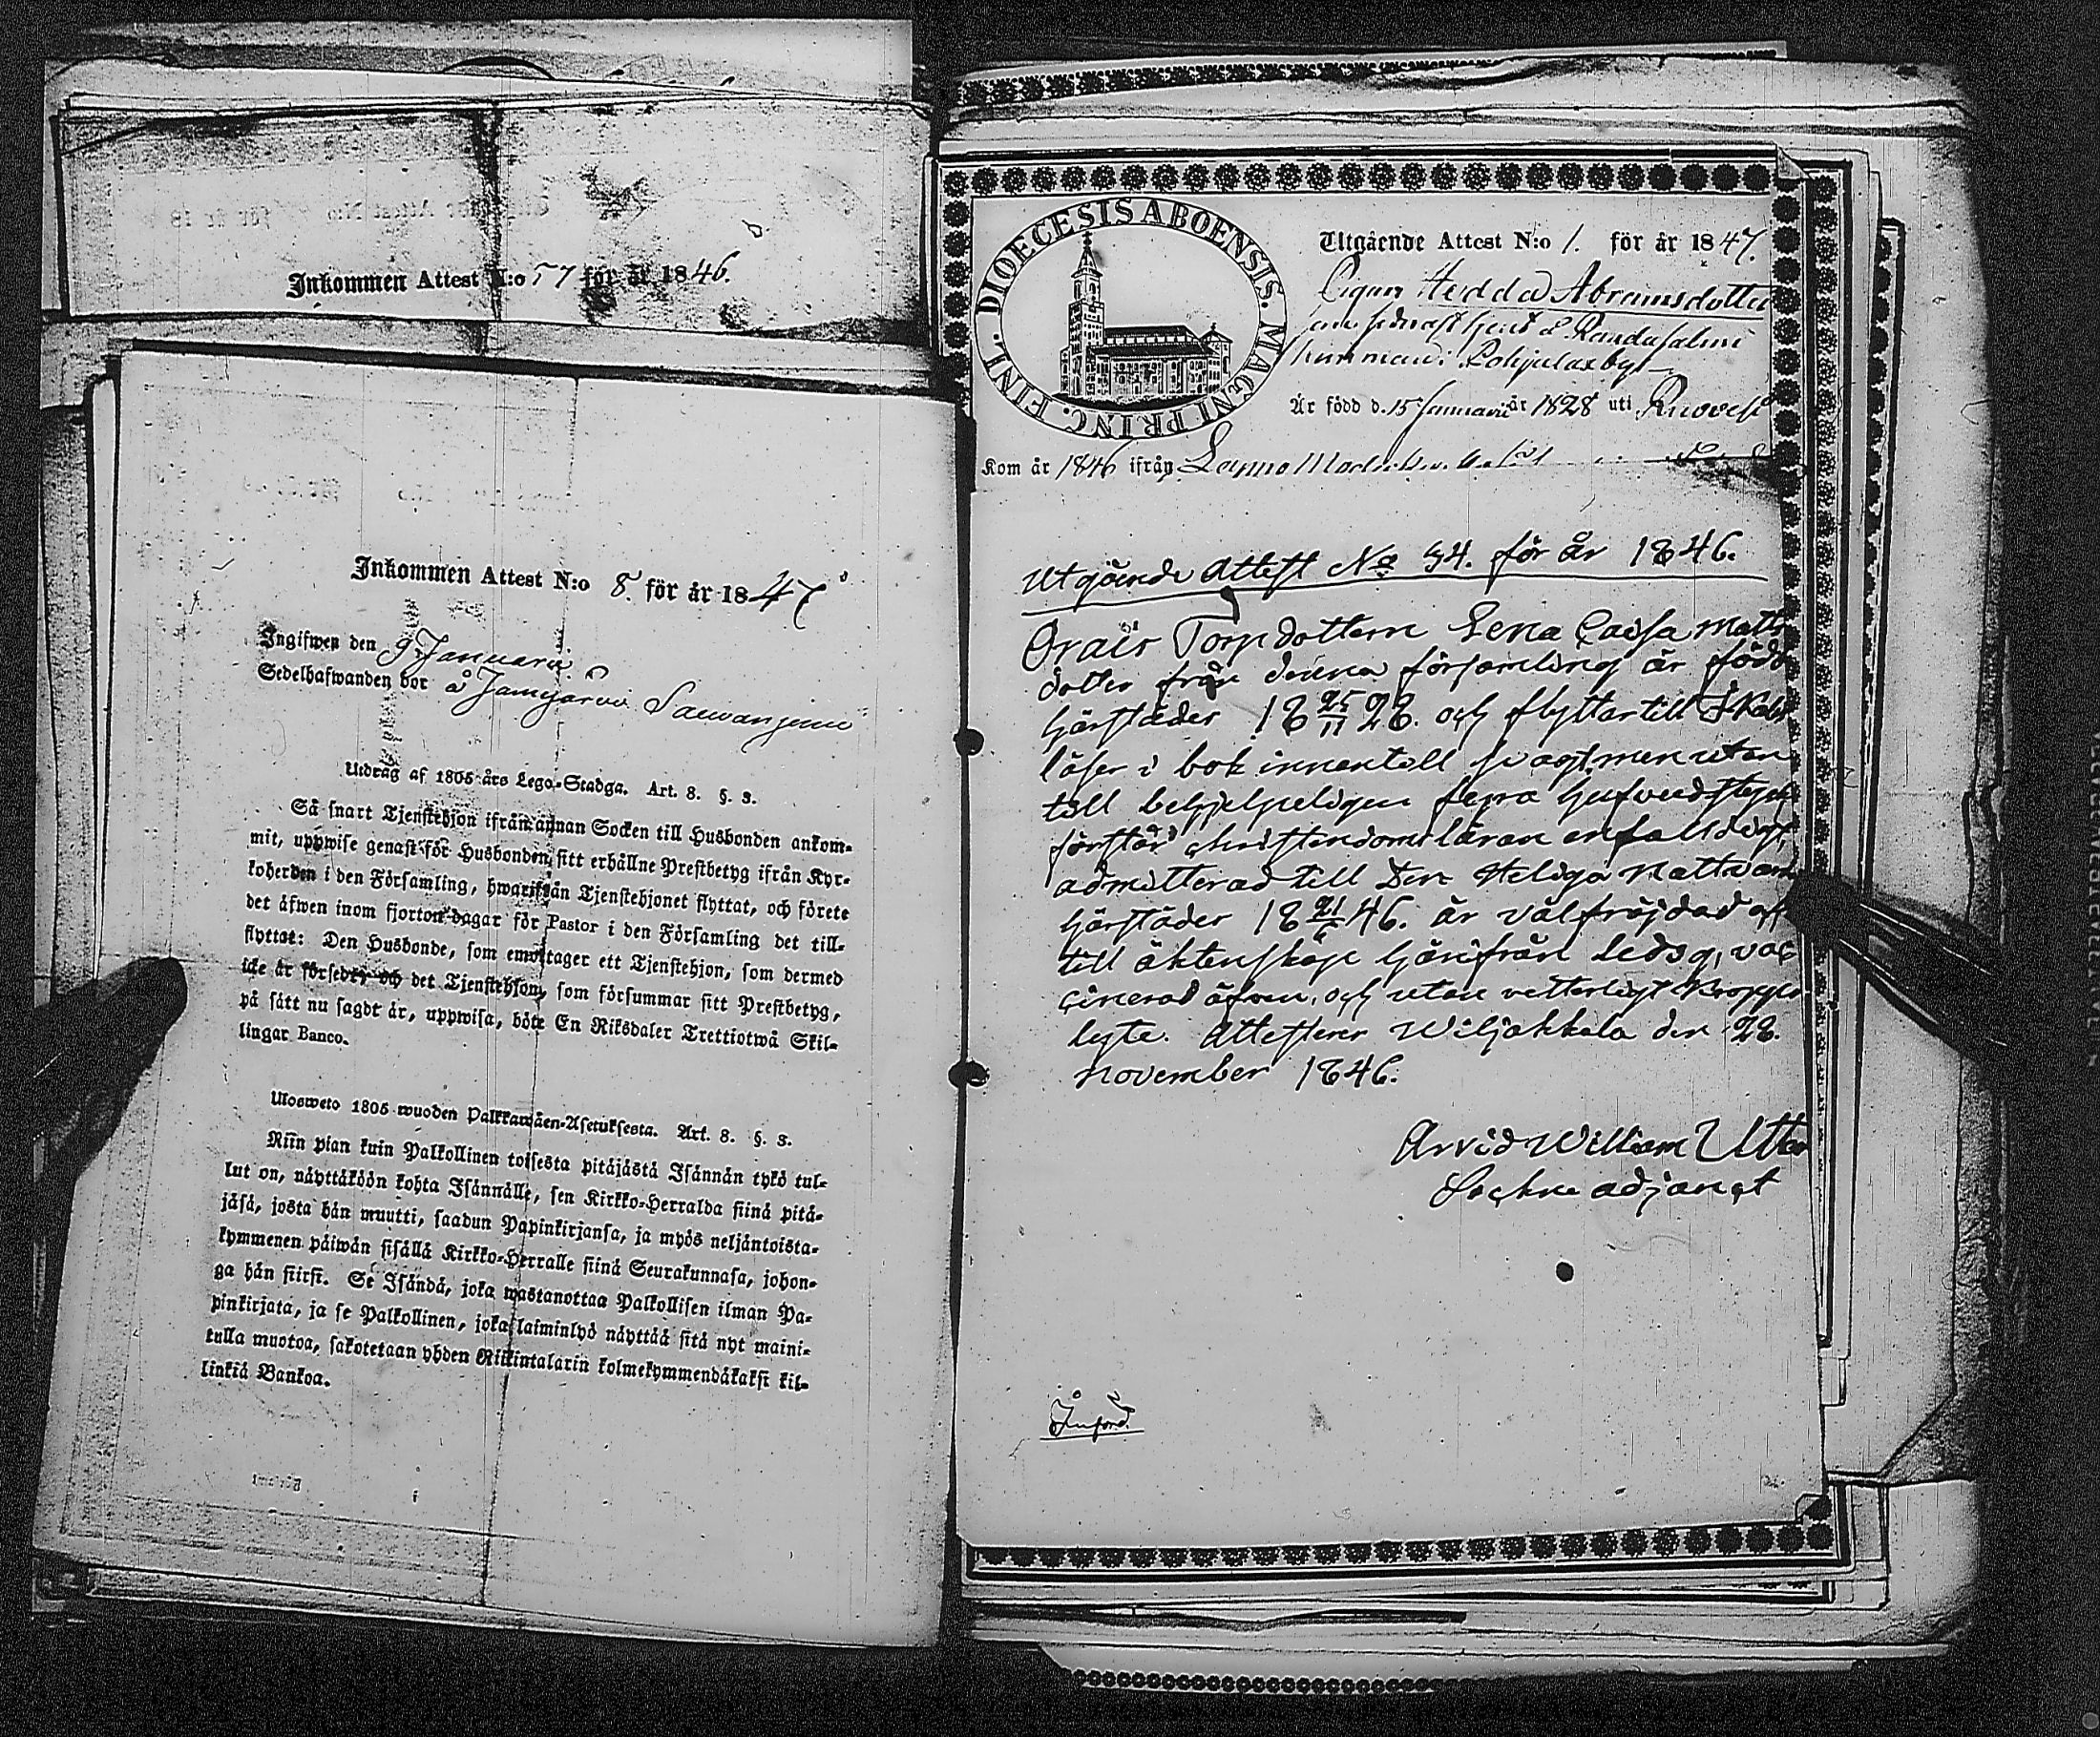 Inkommen Attest N:o 57 för år 1846.
Inkommen Attest N:o 8. för år 1847
Ingifwen den 9 Januarii
Sedelhafwanden bor å Jamijärvi
Utdrag af 1805 års Lego-Stadga. Art. 8. §. 3.
Så snart Tjenstehjon ifrån annan Socken till Husbonden ankom-
mit, uppwise genast för Husbonden sitt erhållne Prestbetyg ifrån Kyr-
koherden i den Församling, hwarifrån Tjenstehjonet flyttat, och förete
det äfwen inom fjorton dagar för Pastor i den Församling det till-
flyttat: Den Husbonde, som emottager ett Tjenstehjon, som dermed
icke är försedt, och det Tjenstehjon, som försummar sitt Prestbetyg,
på sätt nu sagdt är, uppwisa, böte En Riksdaler Trettiotwå Skil-
lingar Banco.
Ulosweto 1805 wuoden Palkkawäen-Asetuksesta. Art. 8. §. 3.
Niin pian kuin Palkollinen toisesta pitäjästä Isännän tykö tul-
lut on, näyttäköön kohta Isännälle, sen Kirkko-Herralda siinä pitä-
jäsä, josta hän muutti, saadun Papinkirjansa, ja myös neljäntoista-
kymmenen päiwän sisällä Kirkko-Herralle siinä Seurakunnasa, johon-
ga hän siirsi. Se Isändä, joka wastanottaa Palkollisen ilman Pa-
pinkirjata, ja se Palkollinen, joka laiminlyö näyttää sitä nyt maini-
tulla muotoa, sakotetaan yhden Riikintalarin kolmekymmendäkaksi kil-
linkiä Bankoa.
DIOECESIS ABOENSIS. MAGNI PRINC. FINL.
Utgående Attest N:o 1. för år 1847.
Pigan Hedda Abramsdotter
som sednast tjent å Raudasalmi
hemman i Pohjulax by
Är född d. 15 Januarii år 1828 uti Ruovesi
Kom år 1846 ifrån
Utgående Attest No 54. för år 1846.
Torpdottern Lena Caisa Matts
dotter från denna församling är född
härstädes 18 25/11 28. och flyttar till
läser i bok innantill svagt men utan
till behjelpeligen fem hufvudstycken
förstår christendomsläran enfaldigt,
admitterad till Den Heliga Nattvard
härstädes 18 21/6 46. är välfrejdad och
till äktenskap härifrån ledig, vac
cinerad äfven, och utan vetterligt kropps
lyte. Attesterar Wiljakkala den 28.
November 1846.
Arvid William Utter
Sockne adjunct
Införd.